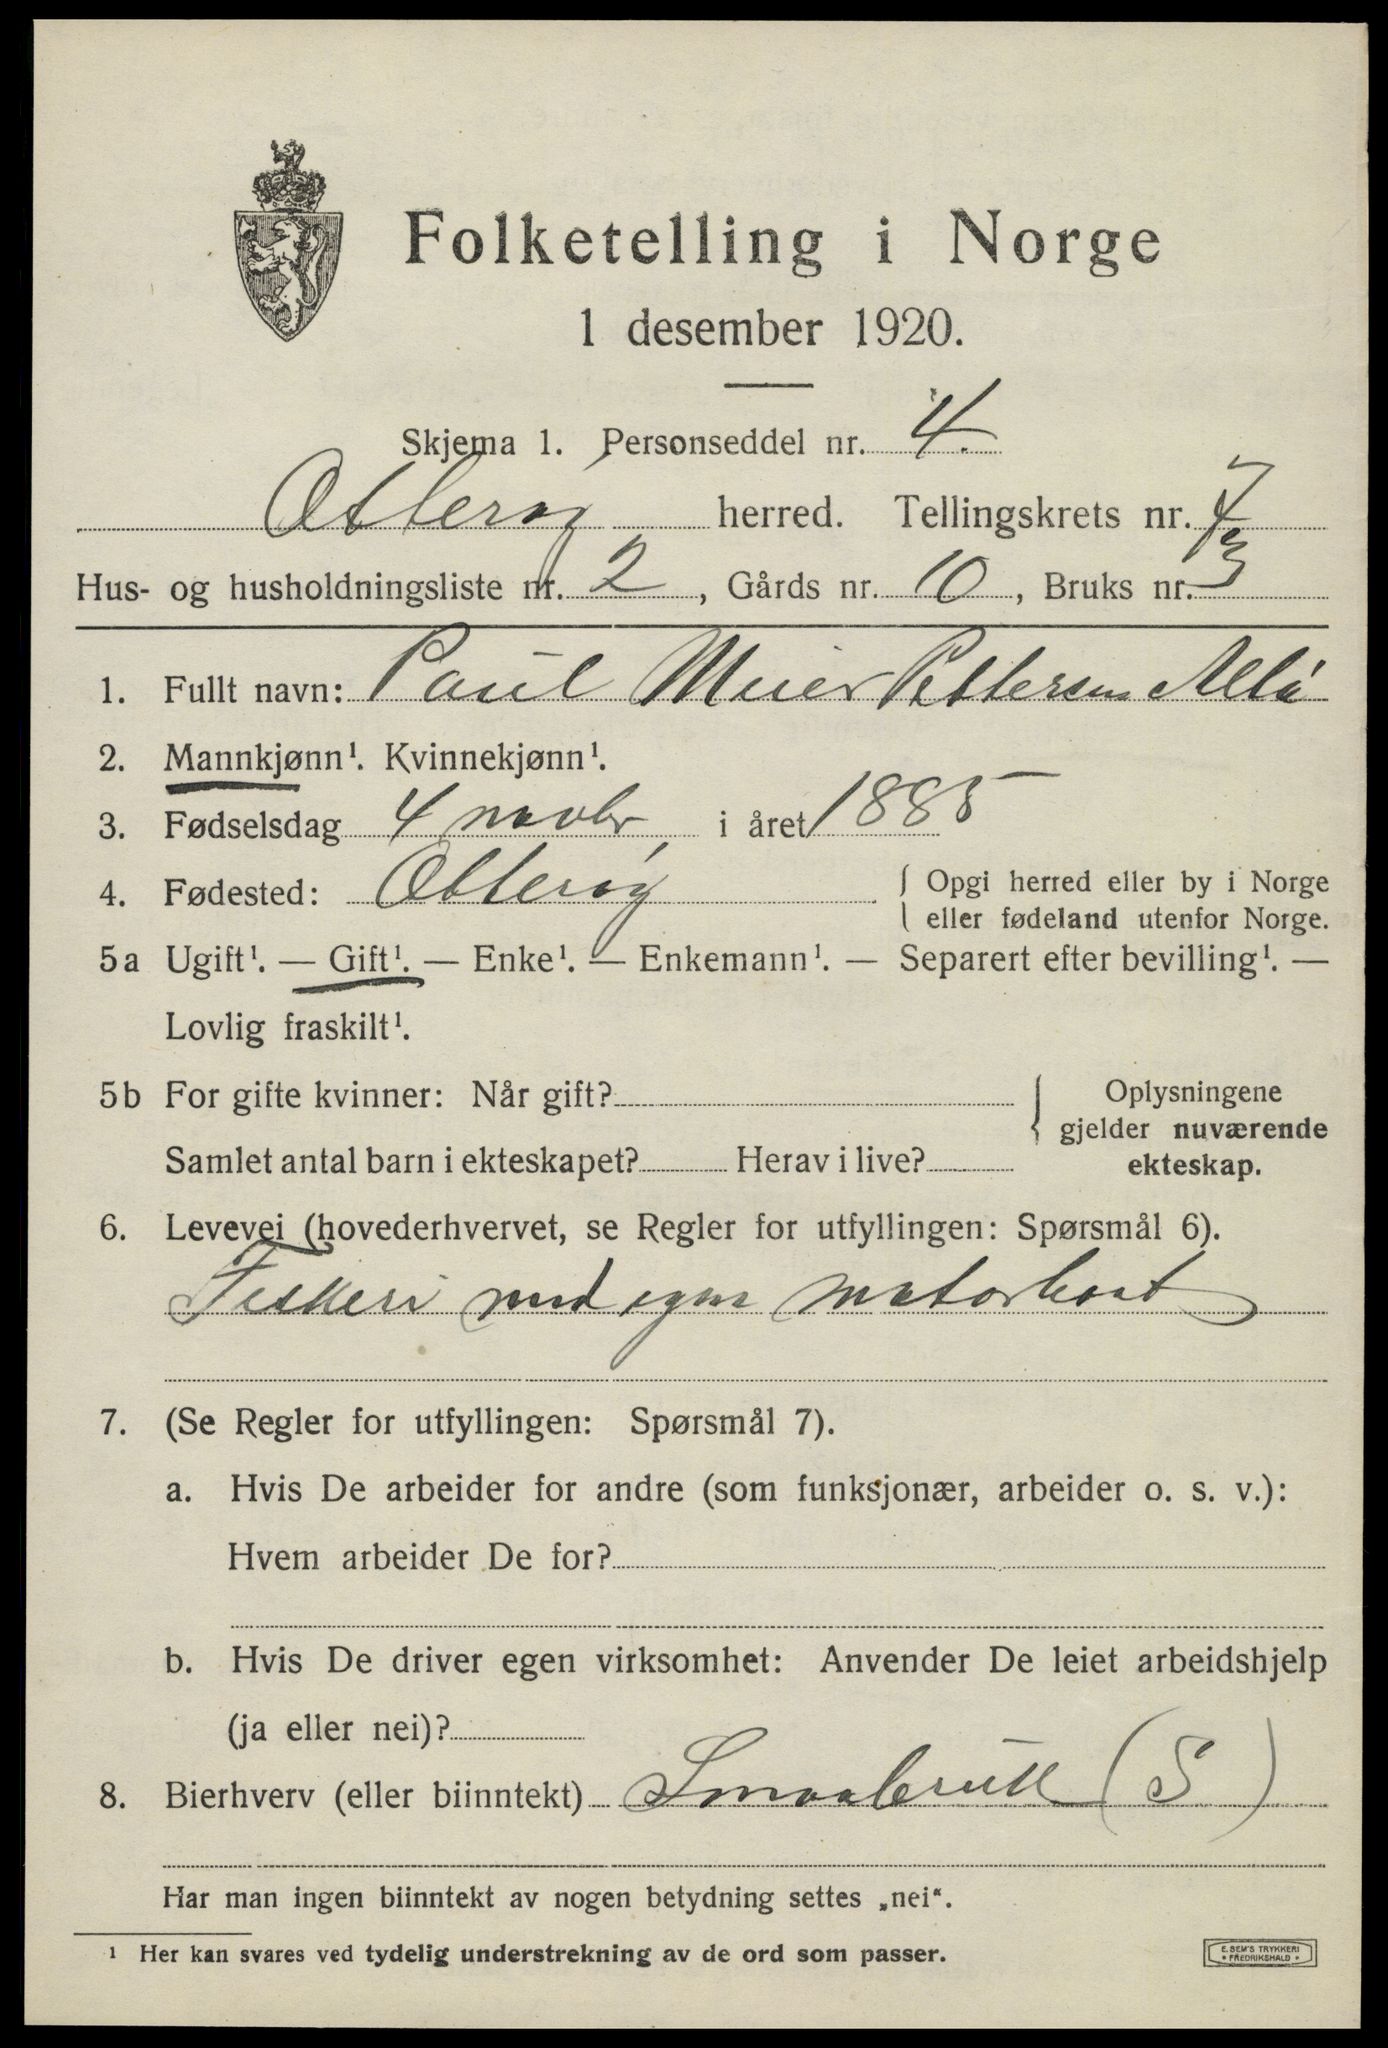 Folketelling i Norge
1 desember 1920.
Skjema 1. Personseddel nr. 4.
Otterøy herred. Tellingskrets nr. 7
Hus- og husholdningsliste nr. 2, Gårds nr. 10, Bruks nr. 3
1. Fullt navn: Paul Meier Pettersen
2. Mannkjønn¹. Kvinnekjønn¹.
3. Fødselsdag 4 novbr i året 1885
4. Fødested: Otterøy { Opgi herred eller by i Norge
eller fødeland utenfor Norge.
5a Ugift¹. — Gift¹. — Enke¹. — Enkemann¹. — Separert efter bevilling¹. —
Lovlig fraskilt¹.
5b For gifte kvinner: Når gift? { Oplysningene
gjelder nuværende
Samlet antal barn i ekteskapet? Herav i live? ekteskap.
6. Levevei (hovederhvervet, se Regler for utfyllingen: Spørsmål 6).
Fiskeri med egen motorbaat
7. (Se Regler for utfyllingen: Spørsmål 7).
a. Hvis De arbeider for andre (som funksjonær, arbeider o. s. v.):
Hvem arbeider De for?
b. Hvis De driver egen virksomhet: Anvender De leiet arbeidshjelp
(ja eller nei)?
8. Bierhverv (eller biinntekt) Smaabruk (S)
Har man ingen biinntekt av nogen betydning settes „nei“.
¹ Her kan svares ved tydelig understrekning av de ord som passer.
E. SEM'S TRYKKERI
• FREDRIKSHALD •